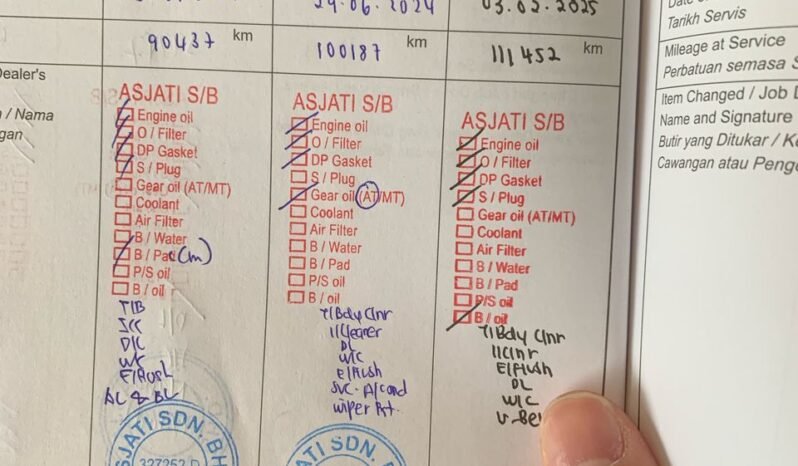 24.06.2024
03.02.2025
90437 km
100187 km
111452 km
ASJATI S/B
Engine oil
O / Filter
DP Gasket
S / Plug
Gear oil (AT/MT)
Coolant
Air Filter
B / Water
B / Pad (m)
P/S oil
B / oil
T/B
D/C
E/Flush
ASJATI S/B
Engine oil
O / Filter
DP Gasket
S / Plug
Gear oil (AT/MT)
Coolant
Air Filter
B / Water
B / Pad
P/S oil
B / oil
T/Bdy Clnr
I/Cleaner
DL
W/C
E/Flush
SVC. A/Cond
Wiper Rt.
ASJATI S/B
Engine oil
O / Filter
DP Gasket
S / Plug
Gear oil (AT/MT)
Coolant
Air Filter
B / Water
B / Pad
P/S oil
B / oil
T/Bdy Clnr
I/Clnr
E/Flush
DL
W/C
Dealer's
/ Nama
SJATI SDN. BH
327252
ATI SDN.
Tarikh Servis
Mileage at Service
Perbatuan semasa S
Item Changed / Job
Name and Signature
Butir yang Ditukar / K
Cawangan atau Peng